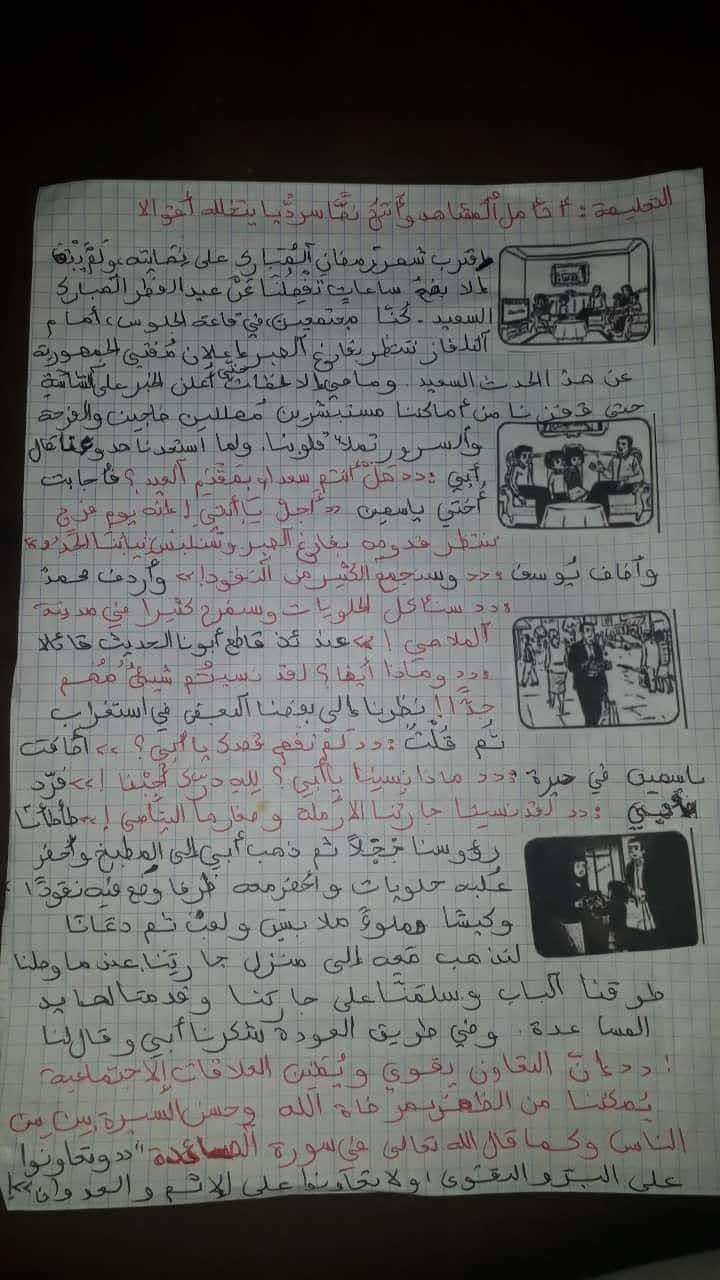 التعليمة: أتأمل المشاهد وأنتج نصّا سرديّا يتخلله أقوالا
اقترب شهر رمضان المبارك على نهايته، ولم يبق
إلا بضع ساعات تفصلنا عن عيد الفطر المبارك
السعيد. كنّا مجتمعين في قاعة الجلوس، أمام
التلفاز ننتظر بفارغ الصبر إعلان مُفتي الجمهورية
عن هذ الحدث السعيد. وما هي إلا لحظات حتى أعلن الخبر على الشاشة
حتى قفزنا من أماكننا مستبشرين مُهللين فاجين والفرحة
والسرور تملأ قلوبنا. ولما استعدنا هدوءنا قال
أبي: << هل أنتم سعداء بمقدم العيد؟ فأجابت
أُختي ياسمين << أجل يا أبتي! إنه يوم فرح
ننتظر قدومه بفارغ الصبر وسنلبس ثيابنا الجدد >>
وأضاف يُوسف: << وسنجمع الكثير من النقود! >> وأردف محمد
: << سنأكل الحلويات وسنفرح كثيرا في مدينة
الملاهي! >> عند ئذ قاطع أبونا الحديث قائلا
: << وماذا أيضا؟ لقد نسيتم شيئ مُهم
جدّا! نظرنا إلى بعضنا البعض في استغراب
ثم قُلْتُ: << لم نفهم قصدك يا أبي؟ >> أضافت
ياسمين في حيرة: << ماذا نسينا يا أبي؟ لله درّك أجبنا! >> فردّ
: << لقد نسينا جارتنا الأرملة وصغارها اليتامى! >> طأطأنا
رؤوسنا خجلاً ثم ذهب أبي إلى المطبخ وأحضر
عُلبه حلويات وأحضر معه ظرفا وضع فيه نقودًا
وكيسًا مملوءً ملابس ولعب ثم دعانا
لنذهب معه إلى منزل جارتنا، عندما وصلنا
طرقنا الباب وسلمنا على جارتنا وقدمنا لها يد
المساعدة. وفي طريق العودة شكرنا أبي وقال لنا
: << إنّ التعاون يقوي ويُمتن العلاقات الإجتماعية
يُمكننا من الظفر بمرضاة الله وحسن السيرة بين
الناس وكما قال الله تعالى في سورة المائدة "<< وتعاونوا
على البرّ والتقوى ولا تعاونوا على الإثم والعدوان >>!